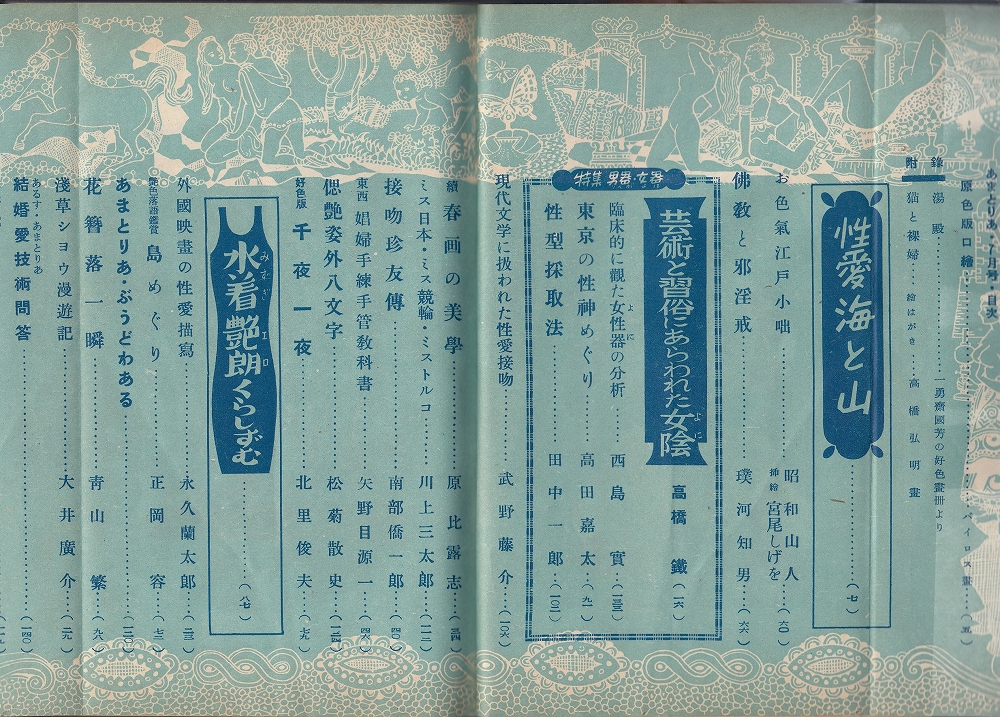 あまとりあ・七月号・目次
原色版口繪……バイロス畫……(五)
附錄
湯殿……一勇齋國芳の好色畫册より
猫と裸婦……繪はがき……高橋弘明畫
性愛海と山……(七)
お色氣江戸小咄……昭和山人…(六〇)
挿繪 宮尾しげを
佛敎と邪淫戒……璞河知男…(六六)
特集 男器・女器
芸術と習俗にあらわれた女陰 高橋鐵(一六)
よに
臨床的に觀た女性器の分析 西島實…
よに
東京の性神めぐり 高田嘉太…(九一)
性型採取法……田中一郎…(一〇一)
現代文学に扱われた性愛接吻……武野藤介…(一〇六)
續春画の美學……原比露志…
ミス日本・ミス競輪・ミストルコ……川上三太郎…
接吻珍友傳……南部僑一郎…(四〇)
東西 娼婦手練手管敎科書……矢野目源一…(四六)
偲艶姿外八文字……松菊散史…
好色版 千夜一夜……北里俊夫…(七六)
水着艶朗くらしずむ……(八七)
みずぎエロ
外國映畫の性愛描寫……永久蘭太郎…
艶色落語鑑賞 島めぐり……正岡容…(七三)
あまとりあ・ぶうどわある……
花簪落一瞬……靑山繁…(九八)
淺草ショウ漫遊記……大井廣介…
あるす・あまとりあ
結婚愛技術問答……(一四〇)